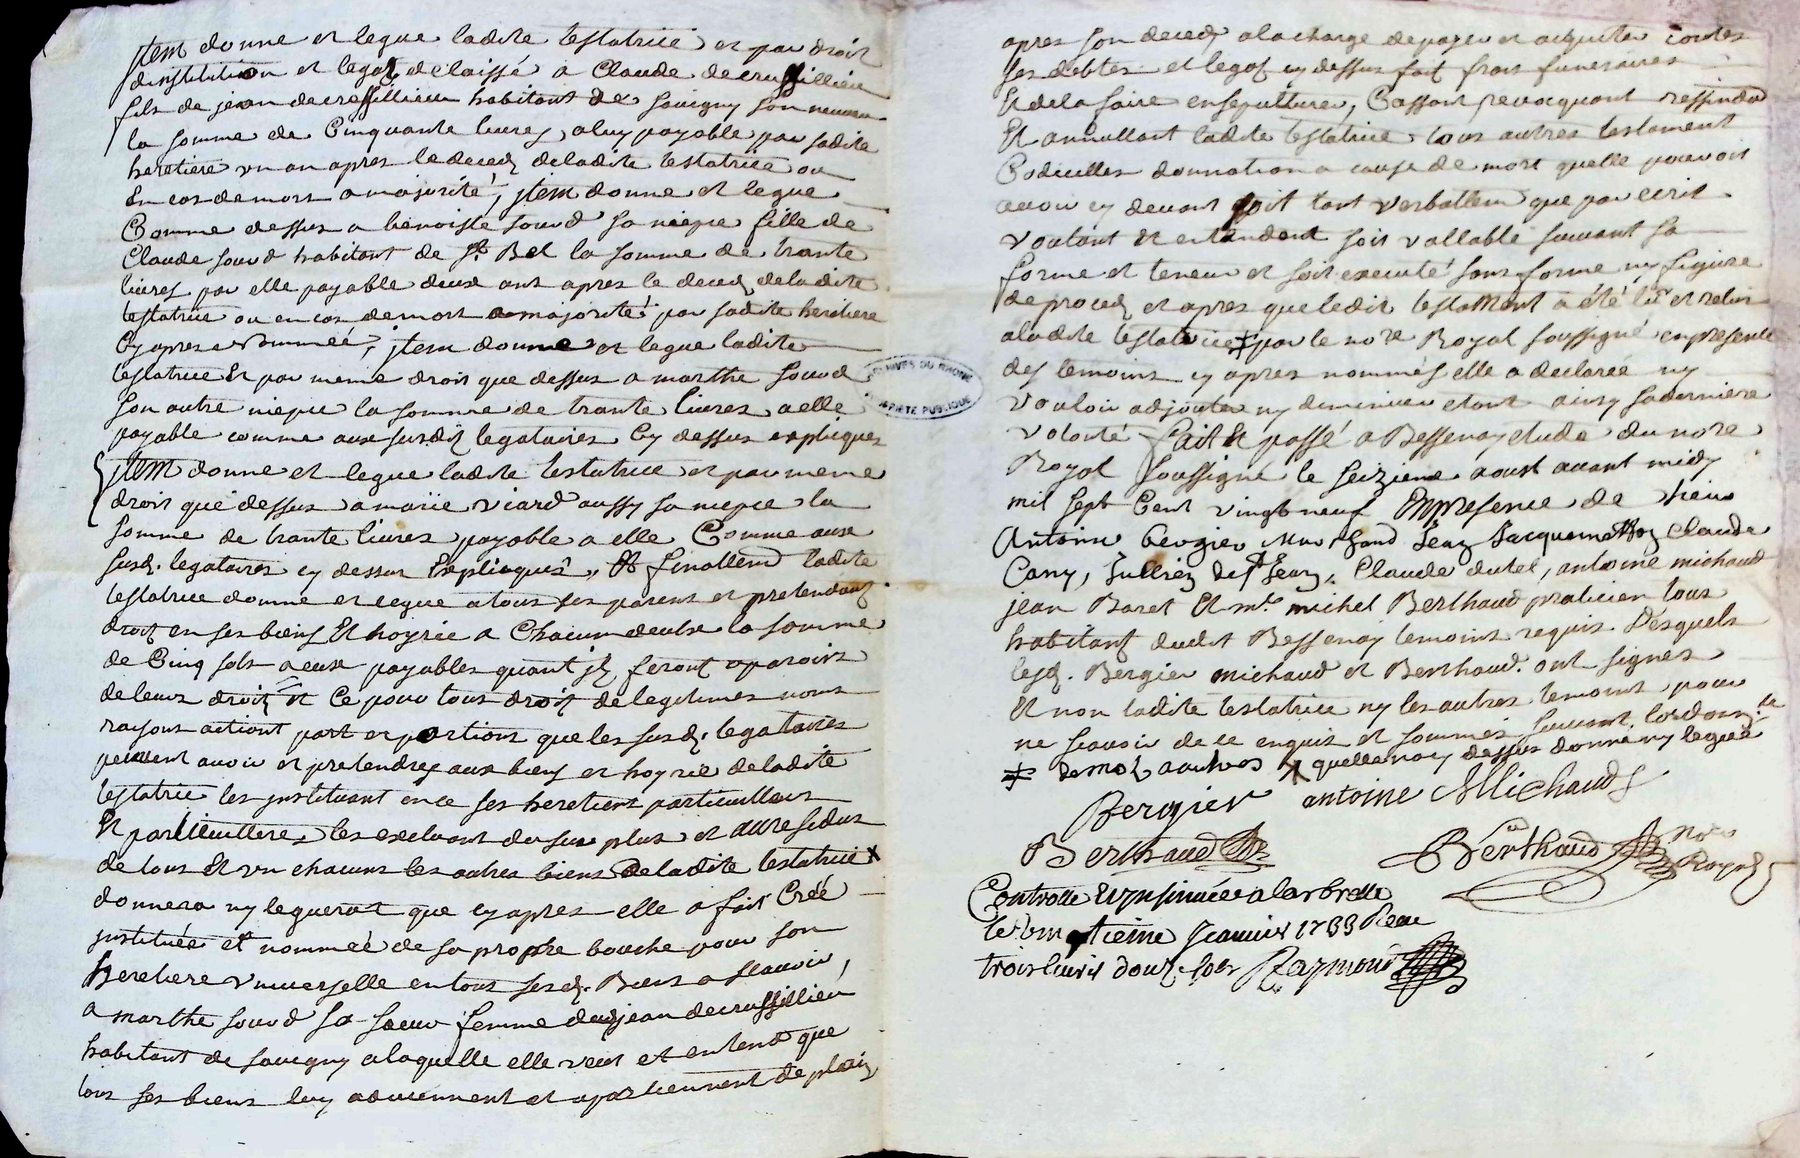 jtem donne et legue ladite testatrice et par droit
dinstitution et legat delaissé a Claude decrussillieu
fils de jean decrussillieu habitant de Savigny son neveu
la somme de Cinquante livres, a luy payable par sadite
heretiere un an apres le deced de ladite testatrice ou
En cas de mort a majorité, jtem donne et legue
Comme dessus a benoiste sourd sa niepce fille de
Claude sourd habitant de St Bel la somme de trante
livres par elle payable deux ans apres le deced de ladite
testatrice ou en cas de mort a majorité par sadite heritiere
Cy apres nommée, jtem donne et legue ladite
testatrice Et par meme droit que dessus a marthe sourd
son autre niepce la somme de trante livres a elle
payable comme aux susdit legataires Cy dessus expliques
jtem donne et legue ladite testatrice et par meme
droit que dessus a marie viard aussy sa niepce la
somme de trante livres payable a elle Comme aux
susd. legataires cy dessus Expliqués, Et finallemt ladite
testatrice donne et legue a tous ses parens et pretendant
droit en ses biens Et hoyrie a Chacun deulx la somme
de Cinq sols a eux payables quant jls seront aparoirs
de leurs droits et Ce pour tous droits de legitimes noms
raisons actions part et portions que les susd. legataires
peuvent avoir et pretendres aux biens et hoyrie de ladite
testatrice les jnstituant en ce ses heretiers particulliers
Et particulliere les excluant du surplus et au residus
de tous Et un chacuns les autres biens De ladite testatrice X
donnera ny leguerat que cy apres elle a fait Creé
jnstituée et nommeé de sa propre bouche pour son
heretiere universelle en tous sesd. Biens a scavoir,
a marthe sourd sa soeur femme dud jean decrussillieu
habitant de savigny a laquelle elle veut et entend que
tous ses biens luy adviennent et apartiennent de plein
apres son deced a la charge de payer et aquiter toutes
ses debtes et legat cy dessus fait frais funeraires
Et de la faire ensepulturer, Cassant revocquant ressindant
Et annullant ladite testatrice tous autres testament
Codicilles donnation a cause de mort quelle pouvoit
avoir cy devant fait tant verballem que par ecrit
voulant et entendent soit vallable suivant sa
forme et teneur et soit executé sans forme ny figure
de proced et apres que ledit testament a été lû et relus
a ladite testatrice ǂ par le nore Royal soussigné en presence
des temoins cy apres nommés elle a declarée ny
vouloir adjouter ny diminuer etant ainsy sa derniere
volonté fait Et passé a Bessenay etude du nore
Royal soussigné le seizieme aoust avant midy
mil sept Cent vingt neuf En presence de sieur
Antoine bergier marchand Jean Jacquemetton Claude
Cany, Jullien de St Jean, Claude dutel, antoine michaud
jean Baret Et mte michel Berthaud praticien tous
habitant dudit Bessenay temoins requis Desquels
lesd. Bergier michaud et Berthaud. ont signes
Et non ladite testatrice ny les autres temoins pour
ne scavoir de ce enquis et sommés suivant lordonce
ǂ de mot a autres X quelle nay dessus donné ny legué
Bergier antoine Michaud
Berthaud
Berthaud nore Royal
Controlle Et jnsinuée a larbresle
le vingtieme Janvier 1733 Reçu
trois livres douze sols Raymond
ARCHIVES DU RHONE
PROPRIÉTÉ PUBLIQUE